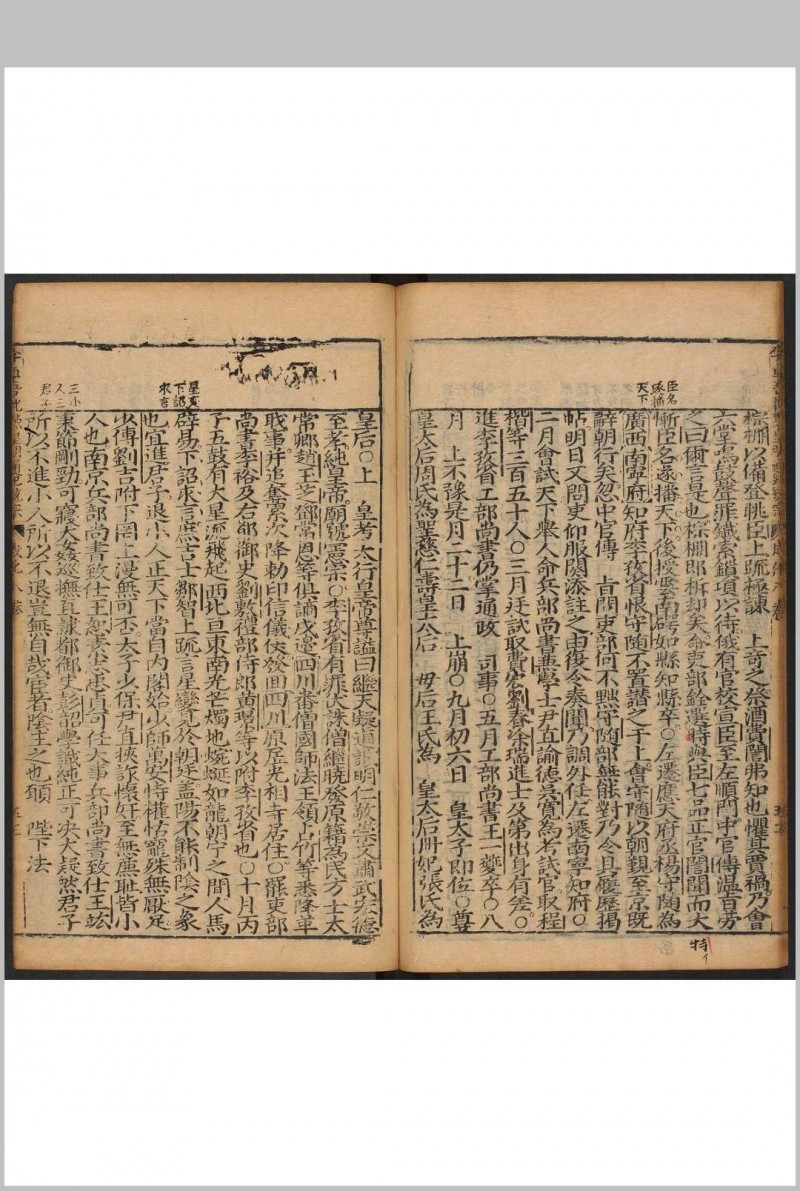 棕棚以備登眺臣上疏極諫　上奇之祭酒費誾弗知也懼其賈禍乃會
六堂鳴鼓聲罪鐵索鎖項以待俄有官校宣臣至左順門中官傳溫旨勞
之曰爾言是也棕棚即拆却矣命吏部銓選時與臣七品正官誾聞而大
慚臣名遂播天下後授雲南碍加縣知縣卒〇左遷應天府丞楊守隨為
廣西南寧府知府李孜省恨守隨不置譖之于上會守隨以朝覲至京既
辭朝行矣忽中官傳　旨問吏部何不黜守隨部無能對乃令具履歷揭
帖明日又問吏仰服闋添註之由復令奏聞乃調外任左遷南寧知府〇
二月會試天下舉人命兵部尚書兼學士尹直諭德吳寬為考試官取程
楷等三百五十人〇三月廷試取費宏劉春涂瑞進士及第出身有差〇
進李孜省工部尚書仍掌通政　司事〇五月工部尚書王一夔卒〇八
月　上不豫是月二十二日　上崩〇九月初六日　皇太子即位〇尊
皇太后周氏為聖慈仁壽皇太后　母后王氏為　皇太后冊妃張氏為
臣名
遂播
天下
特
皇后〇上　皇考大行皇帝尊謚曰繼天凝道誠明仁敬崇文肅武宏德
至孝純皇帝廟號憲宗〇李孜省有罪伏誅僧繼曉發原籍為民方士太
常卿趙玉芝鄧常恩等俱謫戍邊四川番僧國師法王領占竹等悉降革
職事并追奪累次降勅印信儀仗發回四川原居光相寺居住〇罷吏部
尚書李裕及右都御史劉敷禮部侍郎黃㬌等以附李孜省也〇十月丙
子五鼓有大星流飛起西北亘東南光芒燭地蜿蜒如龍朝宁之間人馬
辟易下詔求言庶吉士鄒智上疏言星變見於朝廷盖陽不能制陰之象
也宜進君子退小人正天下當自內閣始少師萬安恃權怙寵殊無厭足
少傅劉吉附下罔上漫無可否太子少保尹直挾詐懷奸全無廉恥皆小
人也南京兵部尚書致仕王恕素志忠貞可任大事兵部尚書致仕王竑
秉節剛勁可寢大姦巡撫直隸都御史彭韶學識純正可決大疑然君子
所以不進小人所以不退豈無自哉宦者陰主之也願　陛下法
星変
下詔
求言
三小
人三
君子